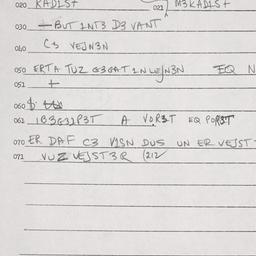 020 KADLST 021 M3KADLST
030 BUT 1NT3 D3 VANT
040 C3 VEJN3N
050 ERTA TUZ 1NLWEJN3N EQ N
051 t
060
061 1B3G3JP3T A VOR3T EQ POR3T
070 ER DAF C3 VISN DUS UN ER VEJST
071 VUZ VEJST3R (212